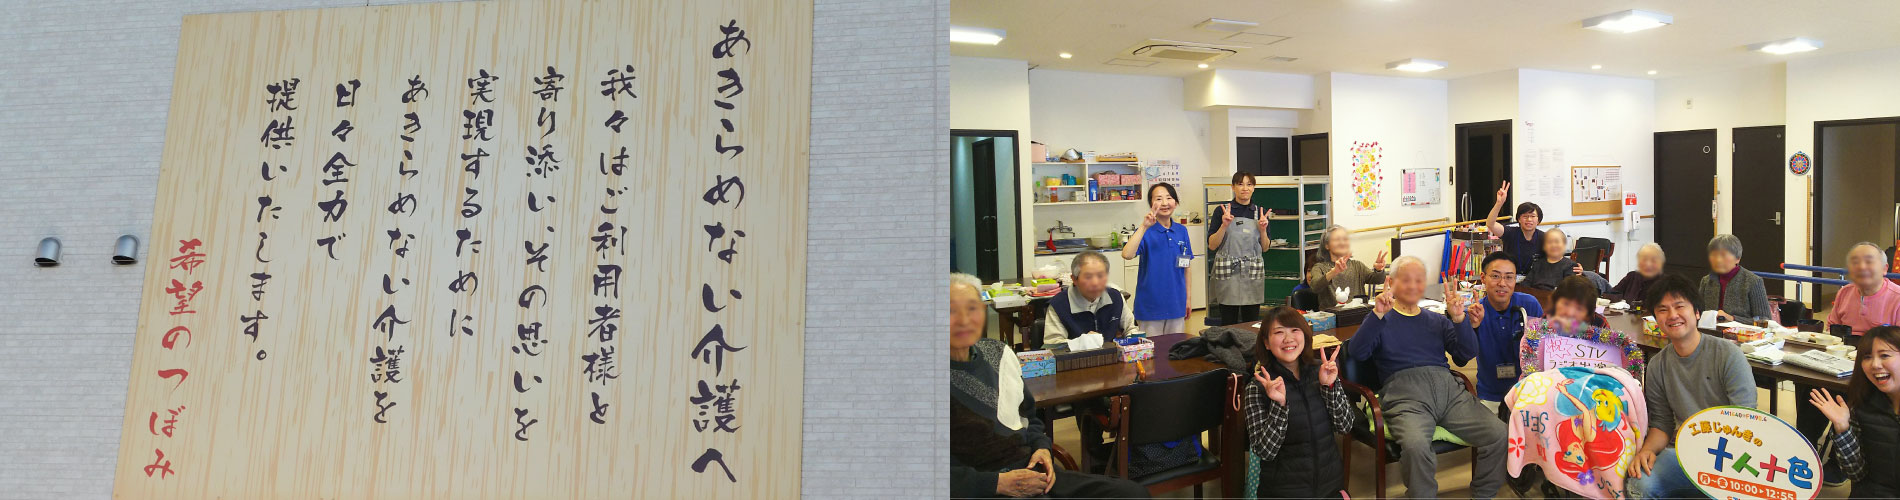 あきらめない介護へ
我々はご利用者様と
寄り添いその思いを
実現するために
あきらめない介護を
日々全力で
提供いたします。
希望のつぼみ
祝
STV
ラジオ出演
AM1440 FM90.4
工藤じゅんきの
十人十色
月〜金 10:00▶12:55